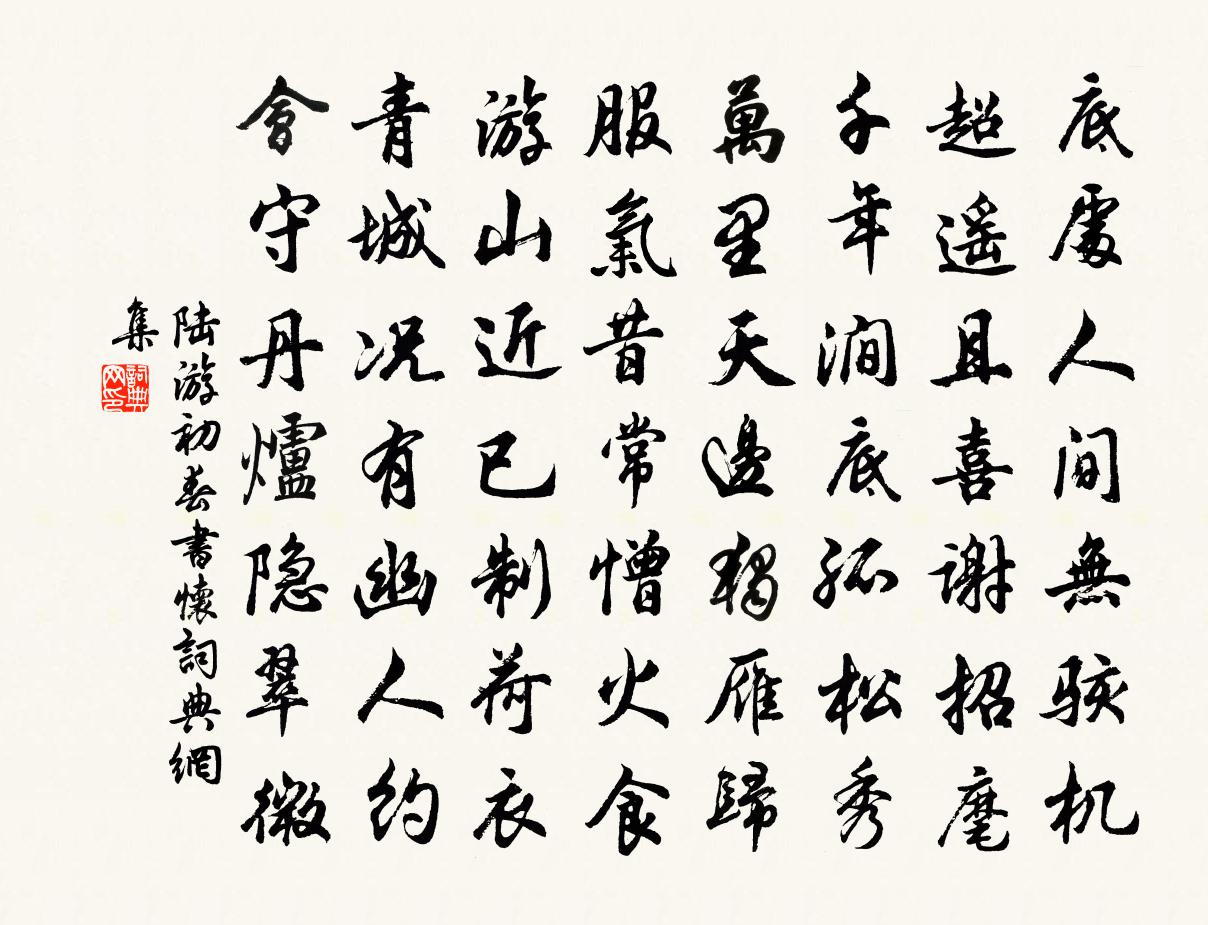 底處人間無駭机
超遥且喜謝招麾
千年澗底孤松秀
萬里天邊獨雁歸
服氣昔常憎火食
游山近已制荷衣
青城况有幽人约
會守丹爐隐翠微
陆游初春書懷詞典網
集
詞典
网印